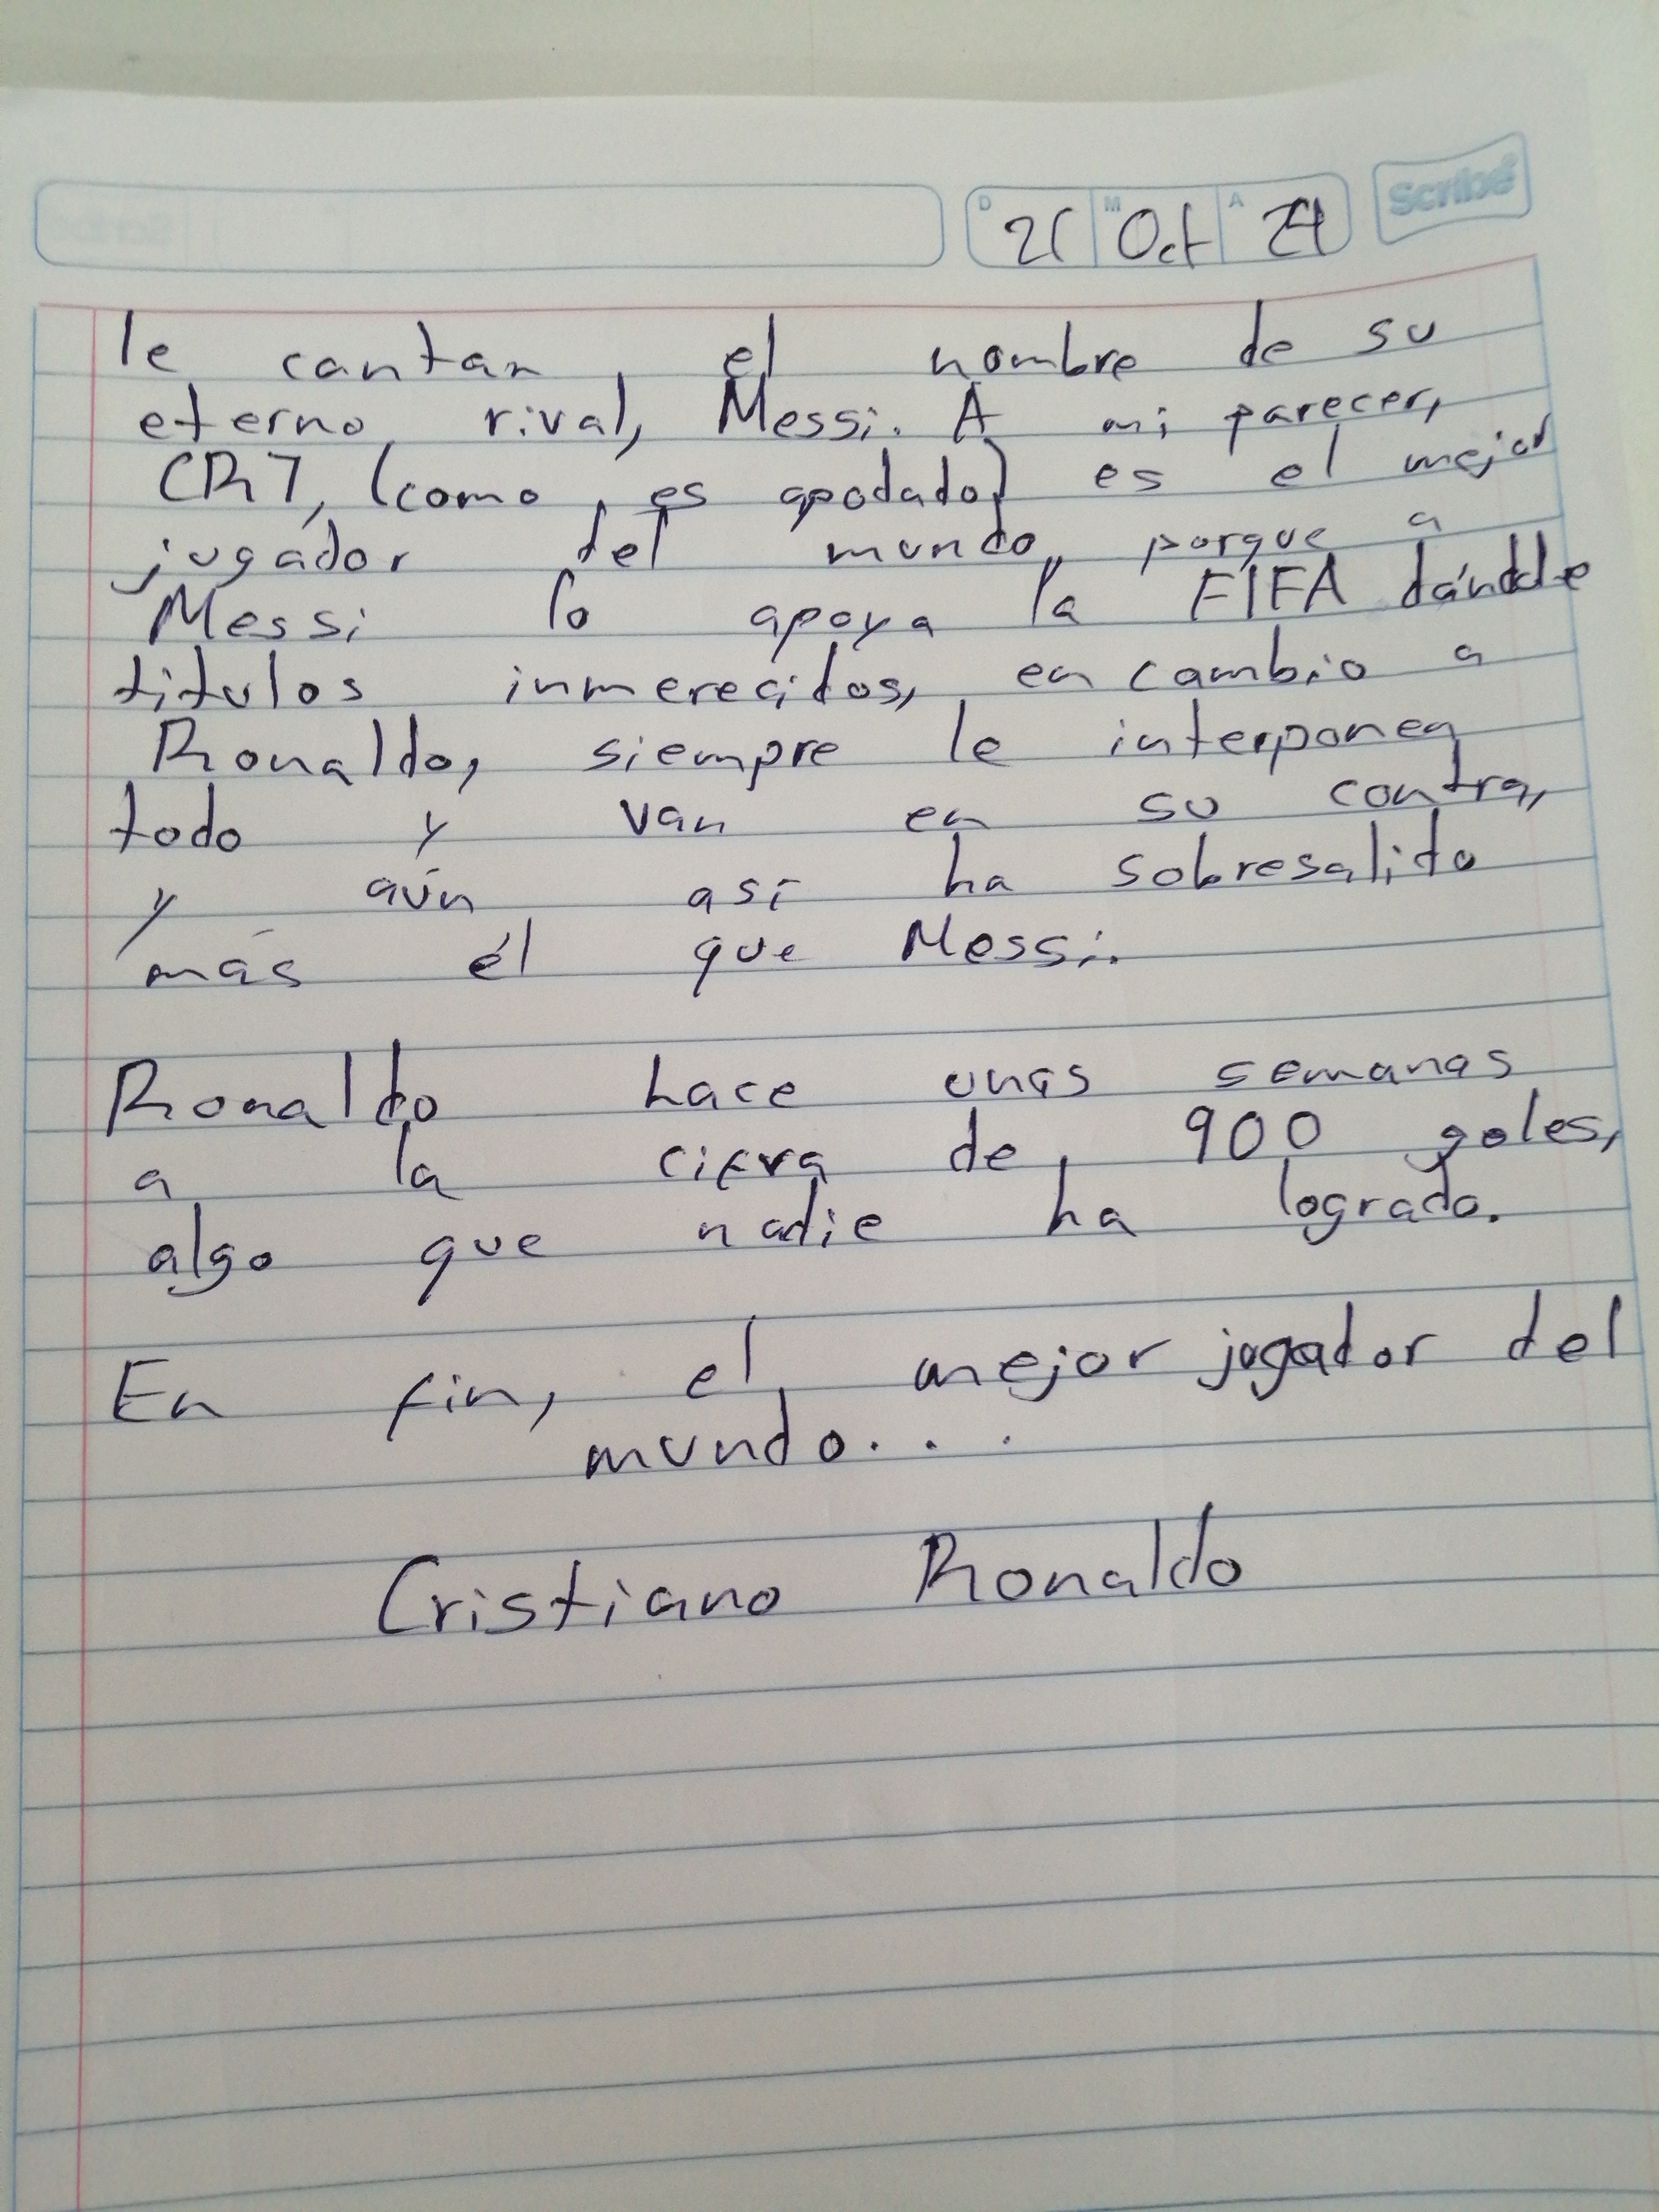 D 21 M Oct A 24 Scribe
le cantan el nombre de su
eterno rival, Messi. A mi parecer,
CR7, (como es apodado) es el mejor
jugador del mundo, porque a
Messi lo apoya la FIFA dándole
titulos inmerecidos, en cambio a
Ronaldo, siempre le interponen
todo y van en su contra,
y aún así ha sobresalido
más él que Messi.
Ronaldo hace unas semanas
a la cifra de 900 goles,
algo que nadie ha logrado.
En fin, el mejor jugador del
mundo...
Cristiano Ronaldo